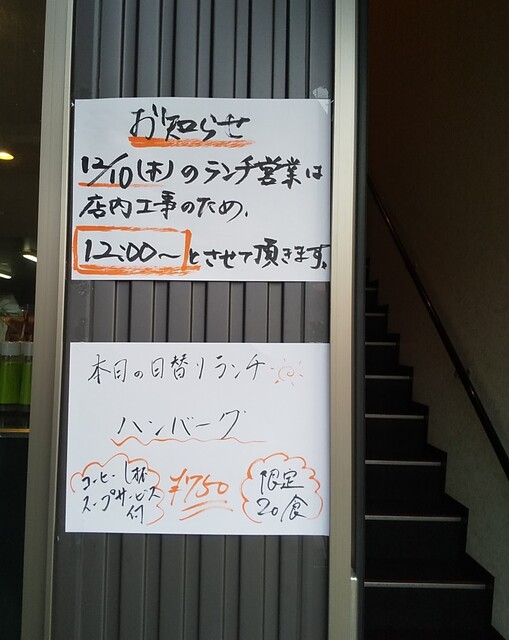 お知らせ
12/10(木)のランチ営業は
店内工事のため、
12:00〜とさせて頂きます。
本日の日替りランチ
ハンバーグ
コーヒー1杯
スープサービス
付
¥750
限定
20食